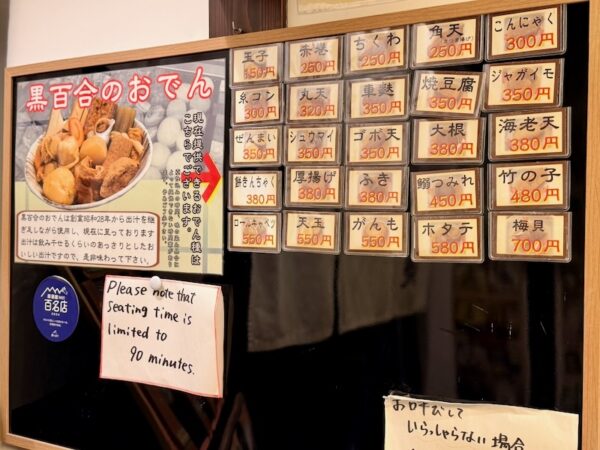 黒百合のおでん
現在提供できるおでん種は
こちらでございます。
黒百合のおでんは創業昭和28年から出汁を継
ぎ足しながら使用し、現在に至っております
出汁は飲み干せるくらいのあっさりとしたお
いしい出汁ですので、是非味わって下さい。
百名店
玉子
150円
赤巻
250円
ちくわ
250円
角天
250円
こんにゃく
300円
糸コン
300円
丸天
320円
車麩
350円
焼豆腐
350円
ジャガイモ
350円
ぜんまい
350円
シュウマイ
350円
ゴボ天
350円
大根
380円
海老天
380円
餅きんちゃく
380円
厚揚げ
380円
ふき
380円
鰯つみれ
450円
竹の子
480円
ロールキャベツ
550円
天玉
550円
がんも
550円
ホタテ
580円
梅貝
700円
Please note that
seating time is
limited to
90 minutes.
お呼びして
いらっしゃらない場合